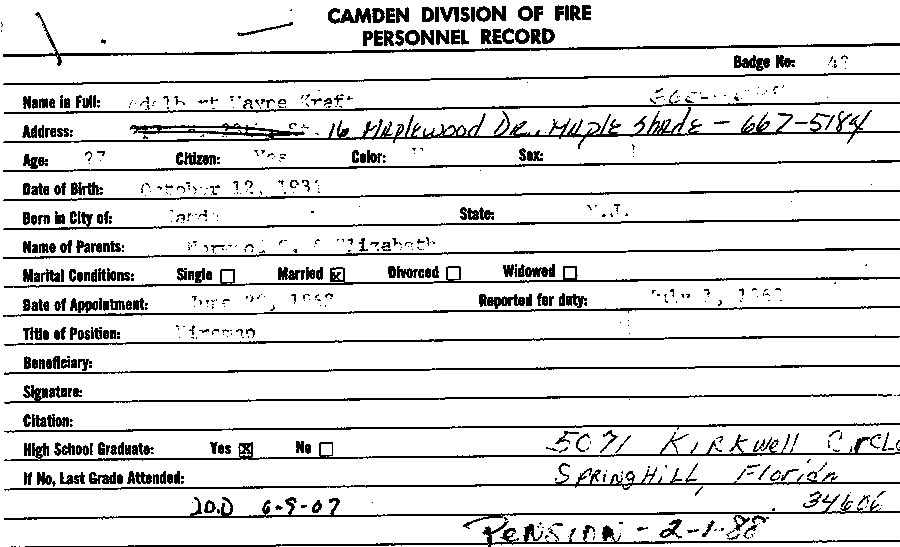 CAMDEN DIVISION OF FIRE
PERSONNEL RECORD
Badge No:
Name in Full: Wayne Kraft
Address: 16 Maplewood Dr. Maple Shade - 667-5184
Age: 27 Citizen: Yes Color: Sex:
Date of Birth: October 12, 1931
Born in City of: State: N.J.
Name of Parents: & Elizabeth
Marital Conditions: Single ☐ Married ☒ Divorced ☐ Widowed ☐
Date of Appointment: Reported for duty: July 1,
Title of Position: Fireman
Beneficiary:
Signature:
Citation:
High School Graduate: Yes ☒ No ☐ 5071 Kirkwell Circle
If No, Last Grade Attended: Spring Hill, Florida
D.O.D 6-9-07 34606
Pension - 2-1-88